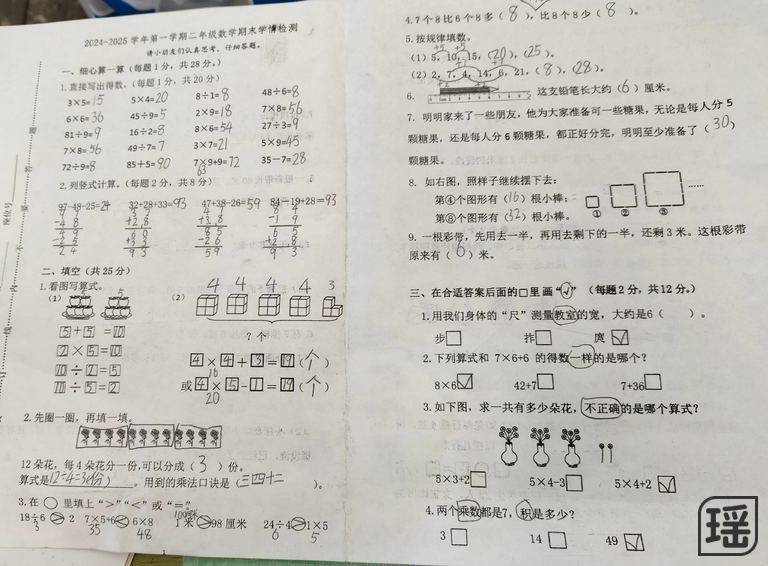 2024-2025 学年第一学期二年级数学期末学情检测
请小朋友们认真思考、仔细答题。
一、细心算一算（每题 1 分，共 28 分。）
1.直接写出得数。（每题 1 分，共 20 分）
3×5=15 5×4=20 8÷1=8 48÷6=8
6×6=36 45÷9=5 2×9=18 7×8=56
81÷9=9 16÷2=8 8×6=54 27÷3=9
7×8=56 49÷7=7 3×7=21 5×9=45
72÷9=8 85+5=90 7×9+9=72 35－7=28
63
2.列竖式计算。（每题 2 分，共 8 分）
97-48-25=24 32+28+33=93 47+38-26=59 84－19+28=93
二、填空（共 25 分）
1.看图写算式。
（1） 5 5 （2） 4 4 4 4 3
5+5=10 ? 个
2×5=10 4×4+3=19（个）
16
10÷2=5 或 4×5-1=19（个）
20
10÷5=2
2.先圈一圈，再填一填。
12 朵花，每 4 朵花分一份，可以分成（3）份。
算式是12÷4=3(份)。用到的乘法口诀是（三四十二）。
3.在○里填上“>”“<”或“=”
18÷6>2 7×5+6<6×8 1 米>98 厘米 24÷4>1×5
3 35 48 100厘米 6 5
4.7 个 8 比 6 个 8 多（8），比 8 个 8 少（8）。
5.按规律填数。
（1）5，10，15，（20），（25）。
（2）2，7，4，14，6，21，（8），（28）。
6. 这支铅笔长大约（6）厘米。
7. 明明家来了一些朋友，他为大家准备可一些糖果，无论是每人分 5
颗糖果，还是每人分 6 颗糖果，都正好分完，明明至少准备了（30）
颗糖果。
8. 如右图，照样子继续摆下去：
第④个图形有（16）根小棒；
第⑧个图形有（32）根小棒。
① ② ③ ……
9. 一根彩带，先用去一半，再用去剩下的一半，还剩 3 米。这根彩带
原来有（6）米。
三、在合适答案后面的□里画“√”（每题 2 分，共 12 分。）
1.用我们身体的“尺”测量教室的宽，大约是 6（ ）。
步□ 拃□ 庹☑
2.下列算式和 7×6+6 的得数一样的是哪个？
8×6☑ 42+7□ 7+36□
3.如下图，求一共有多少朵花，不正确的是哪个算式？
5×3+2□ 5×4－3□ 5×4+2☑
4.两个乘数都是7，积是多少？
3□ 14□ 49☑
瑶